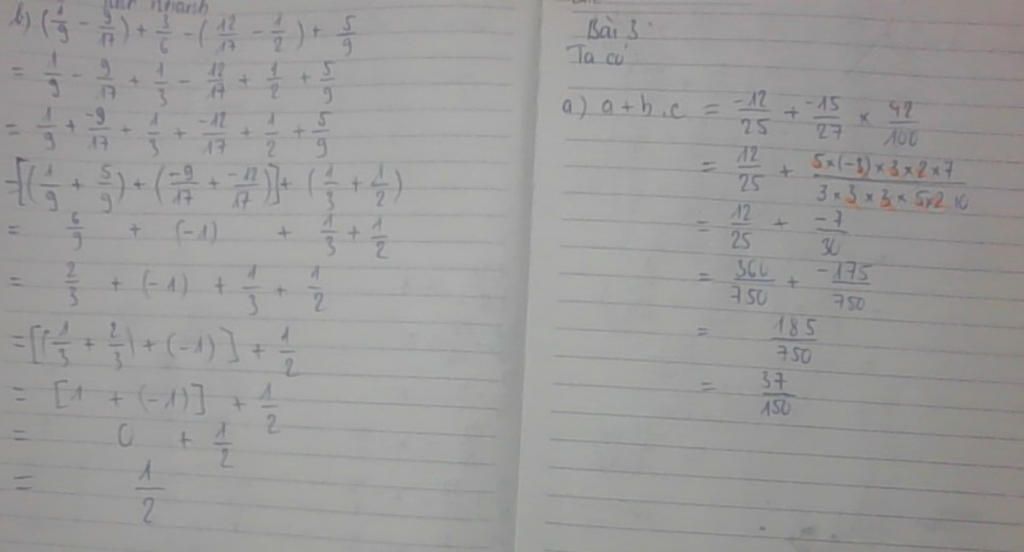 Tính nhanh
b) (1/9 - 9/17) + 3/6 - (12/17 - 1/2) + 5/9
= 1/9 - 9/17 + 1/3 - 12/17 + 1/2 + 5/9
= 1/9 + -9/17 + 1/3 + -12/17 + 1/2 + 5/9
=[(1/9 + 5/9) + (-9/17 + -12/17)] + (1/3 + 1/2)
= 6/9 + (-1) + 1/3 + 1/2
= 2/3 + (-1) + 1/3 + 1/2
=[(1/3 + 2/3) + (-1)] + 1/2
= [1 + (-1)] + 1/2
= 0 + 1/2
= 1/2
Bài 3:
Ta có
a) a + b . c = -12/25 + -15/27 × 42/100
= 12/25 + 5×(-3)×3×2×7/3×3×3×5×2×10
= 12/25 + -7/30
= 360/750 + -175/750
= 185/750
= 37/150